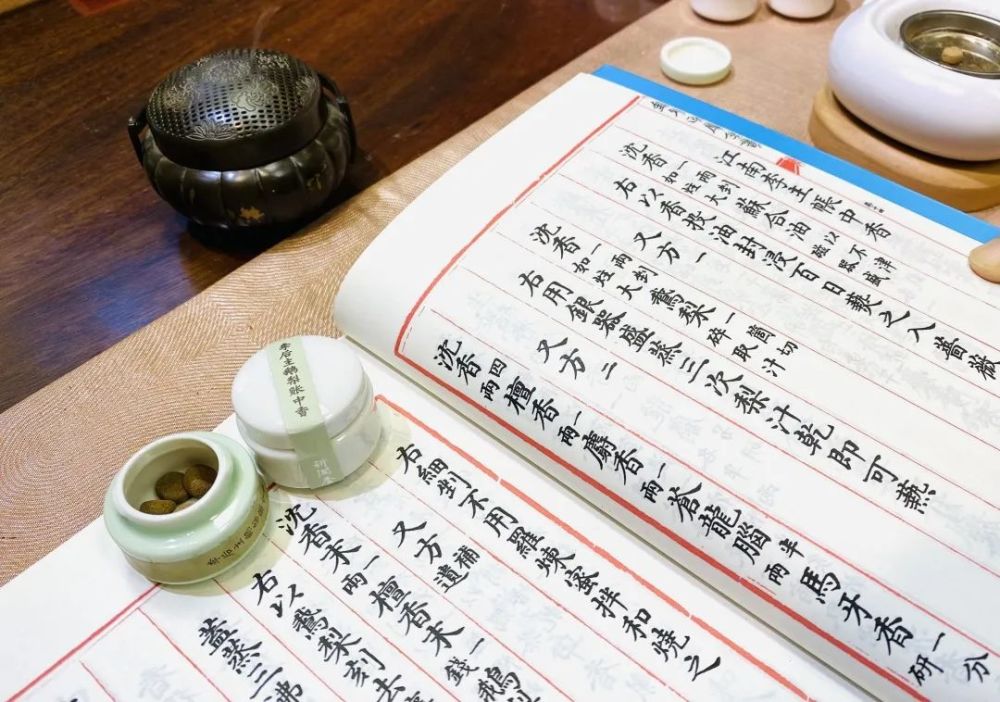 江南李主帳中香
沈香一兩剉如炷大蘇合油以不津磁器盛
右以香投油封浸百日爇之入薔薇
又方一
沈香一兩剉如炷大鵞梨一箇切碎取汁
右用銀器盛蒸三次梨汁乾即可爇
又方二
沈香四兩檀香一兩麝香一兩蒼龍腦半兩馬牙香一分研
右細剉不用羅煉蜜拌和燒之
又方補遺
沈香末一兩檀香末一錢鵝
右以鵞梨刻去
蓋蒸三沸
李后主鵝梨帳中香